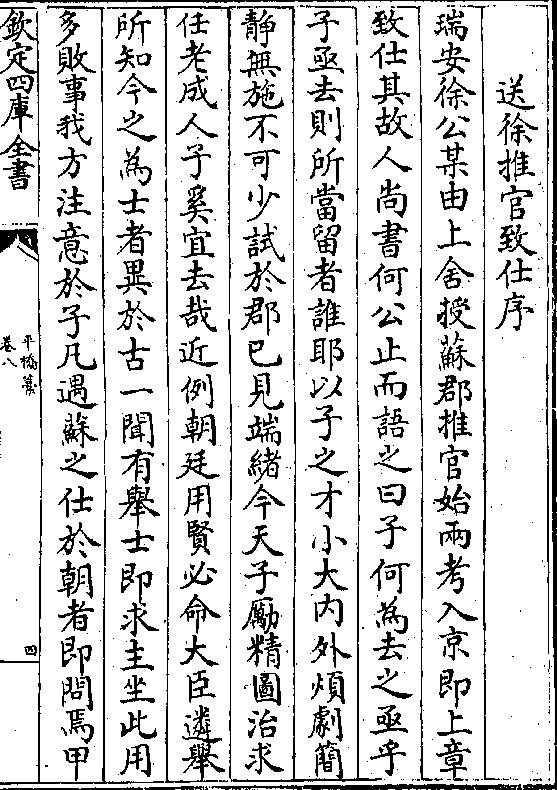 送徐推官致仕序
瑞安徐公某由上舍授蘇郡推官始兩考入京即上章
致仕其故人尚書何公止而語之曰子何為去之亟乎
子亟去則所當留者誰耶以子之才小大内外煩劇簡
静無施不可少試於郡已見端緒今天子勵精圖治求
任老成人子奚宜去哉近例朝廷用賢必命大臣遴舉
所知今之為士者異於古一聞有舉士即求主坐此用
多敗事我方注意於子凡遇蘇之仕於朝者即問焉甲
欽定四庫全書
平橋藁
卷八
四